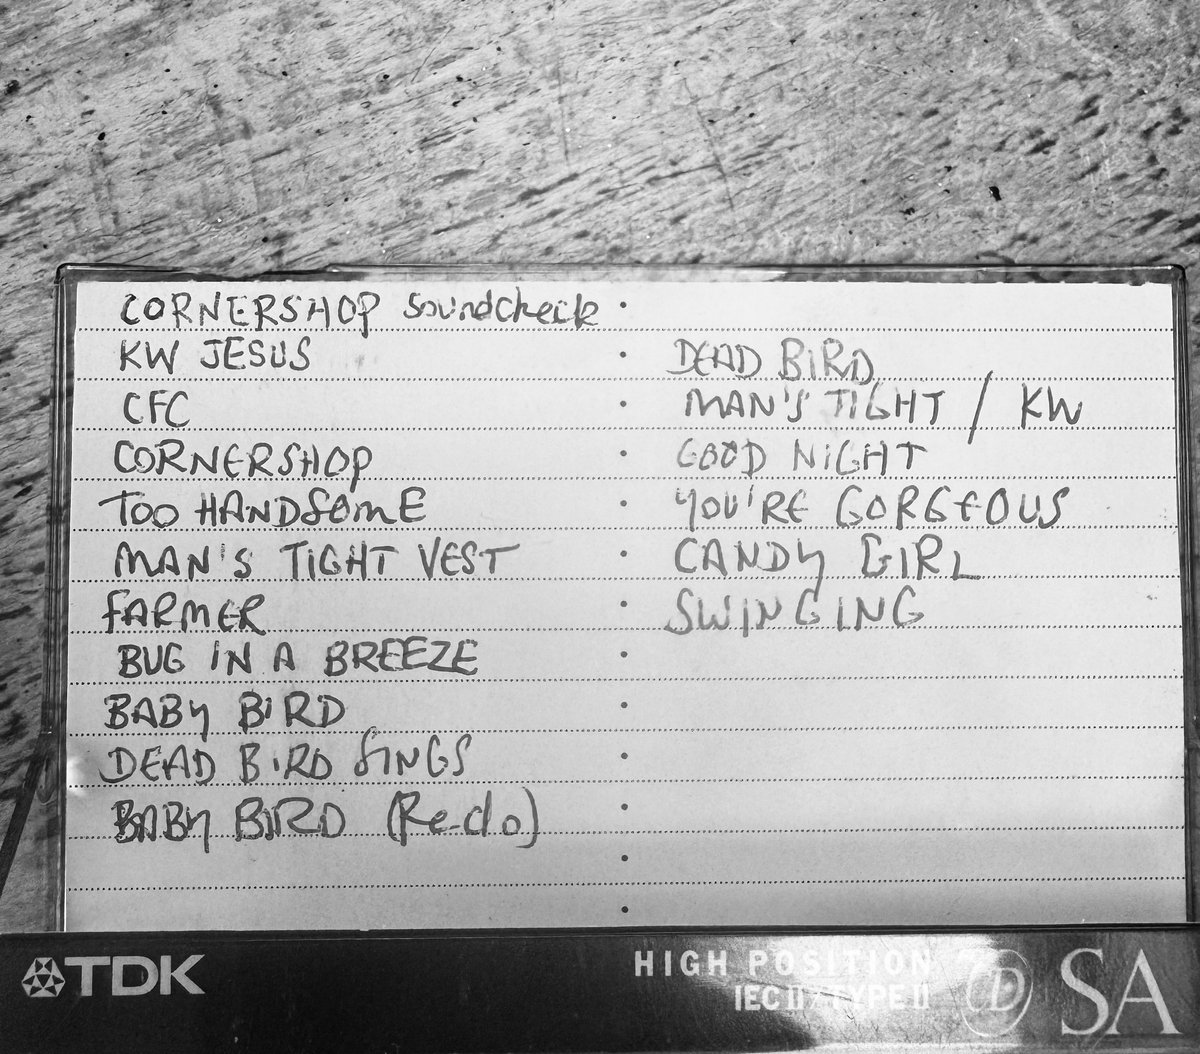 CORNERSHOP Soundcheck
KW JESUS
CFC
CORNERSHOP
TOO HANDSOME
MAN'S TIGHT VEST
FARMER
BUG IN A BREEZE
BABY BIRD
DEAD BIRD SINGS
BABY BIRD (Re-do)
DEAD BIRD
MAN'S TIGHT / KW
GOOD NIGHT
YOU'RE GORGEOUS
CANDY GIRL
SWINGING
TDK
HIGH POSITION
IEC II / TYPE II
D
SA